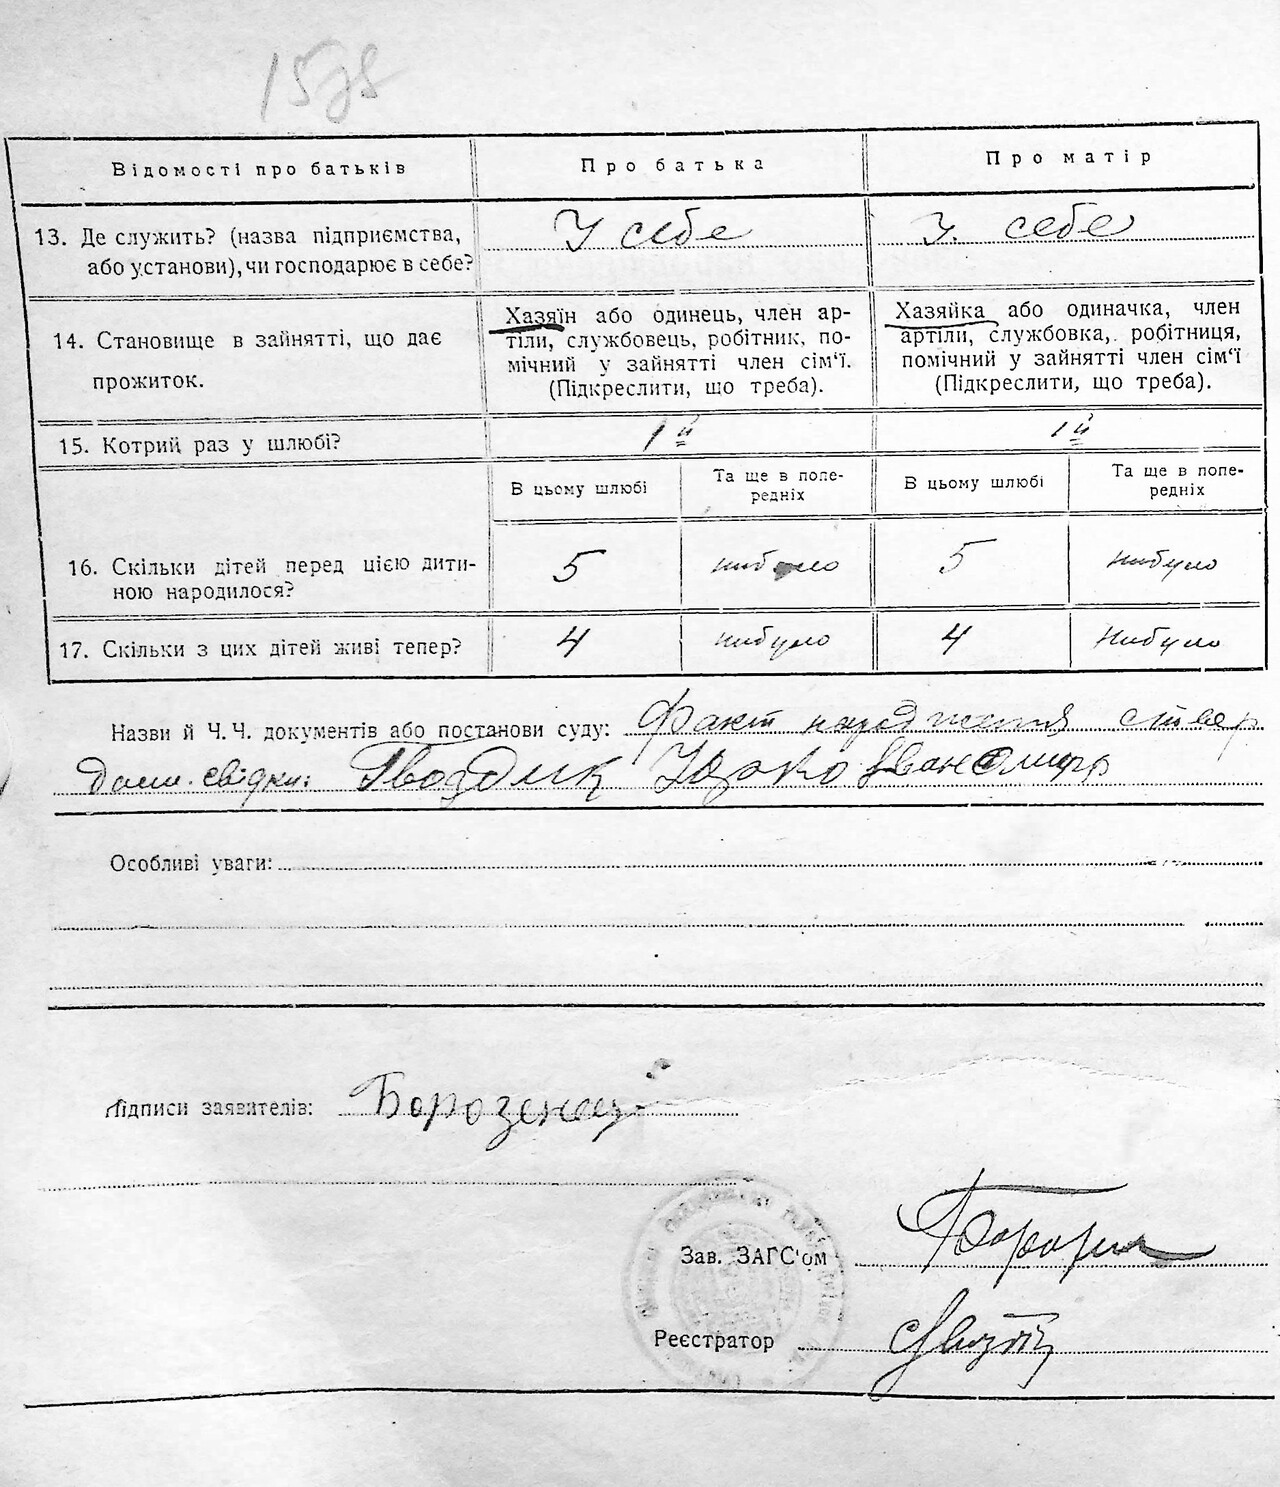 Відомості про батьків
Про батька
Про матір
13. Де служить? (назва підприємства,
або установи), чи господарює в себе?
У себе
У себе
14. Становище в зайнятті, що дає
прожиток.
Хазяїн або одинець, член ар-
тіли, службовець, робітник, по-
мічний у зайнятті член сім‘ї.
(Підкреслити, що треба).
Хазяйка або одиначка, член
артіли, службовка, робітниця,
помічний у зайнятті член сім‘ї
(Підкреслити, що треба).
15. Котрий раз у шлюбі?
1й
1й
В цьому шлюбі
Та ще в попе-
редніх
В цьому шлюбі
Та ще в попе-
редніх
16. Скільки дітей перед цією дити-
ною народилося?
5
нибуло
5
нибуло
17. Скільки з цих дітей живі тепер?
4
нибуло
4
нибуло
Назви й Ч. Ч. документів або постанови суду: Факт народження ствер
свідки: Гвоздик
Особливі уваги:
Підписи заявителів:
Зав. ЗАГС'ом
Реєстратор